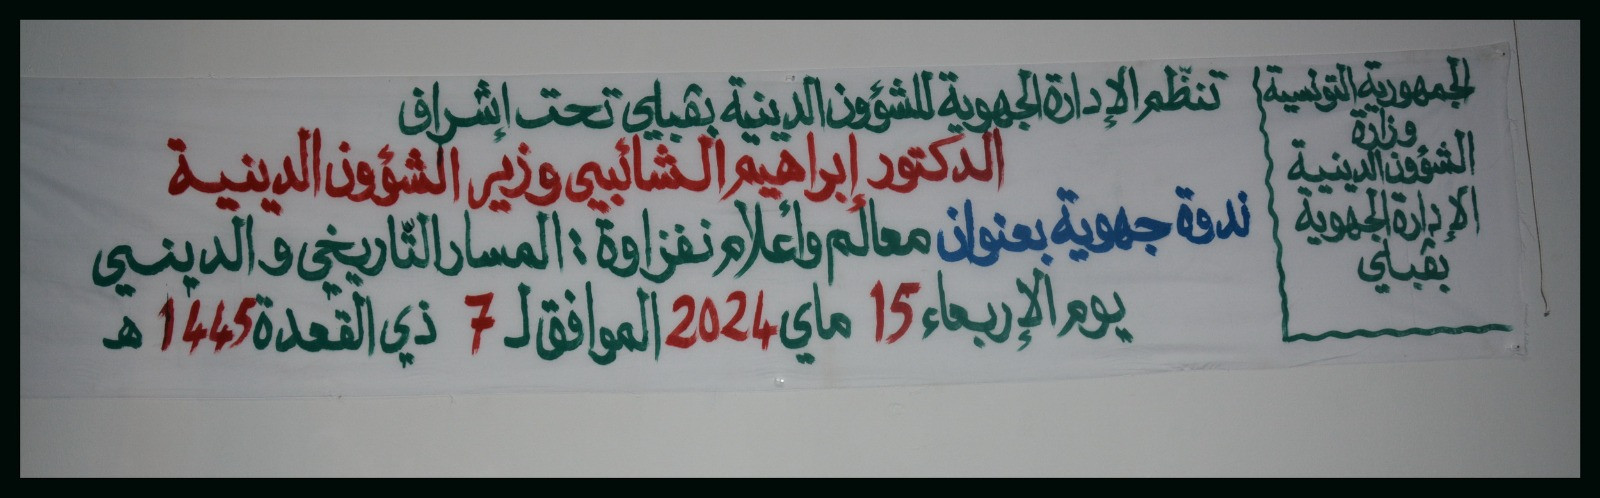 الجمهورية التونسية
وزارة
الشؤون الدينية
الإدارة الجهوية
بڨبلي
تنظّم الإدارة الجهوية للشؤون الدينية بڨبلي تحت إشراف
الدكتور إبراهيم الشائبي وزير الشؤون الدينية
ندوة جهوية بعنوان معالم وأعلام نفزاوة : المسار التّاريخي و الديني
يوم الإربعاء 15 ماي 2024 الموافق لـ 7 ذي القعدة 1445 هـ